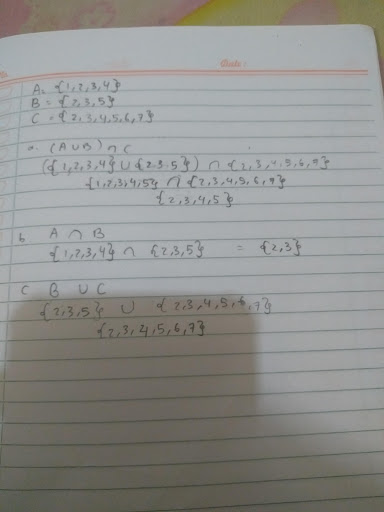 No.
Date :
A. {1,2,3,4}
B = {2,3,5}
C = {2,3,4,5,6,7}
a. (A ∪ B) ∩ C
({1,2,3,4} ∪ {2.3.5}) ∩ {2,3,4,5,6,7}
{1,2,3,4,5} ∩ {2,3,4,5,6,7}
{2,3,4,5}
b A ∩ B
{1,2,3,4} ∩ {2,3,5} = {2,3}
C B ∪ C
{2,3,5} ∪ {2,3,4,5,6,7}
{2,3,4,5,6,7}